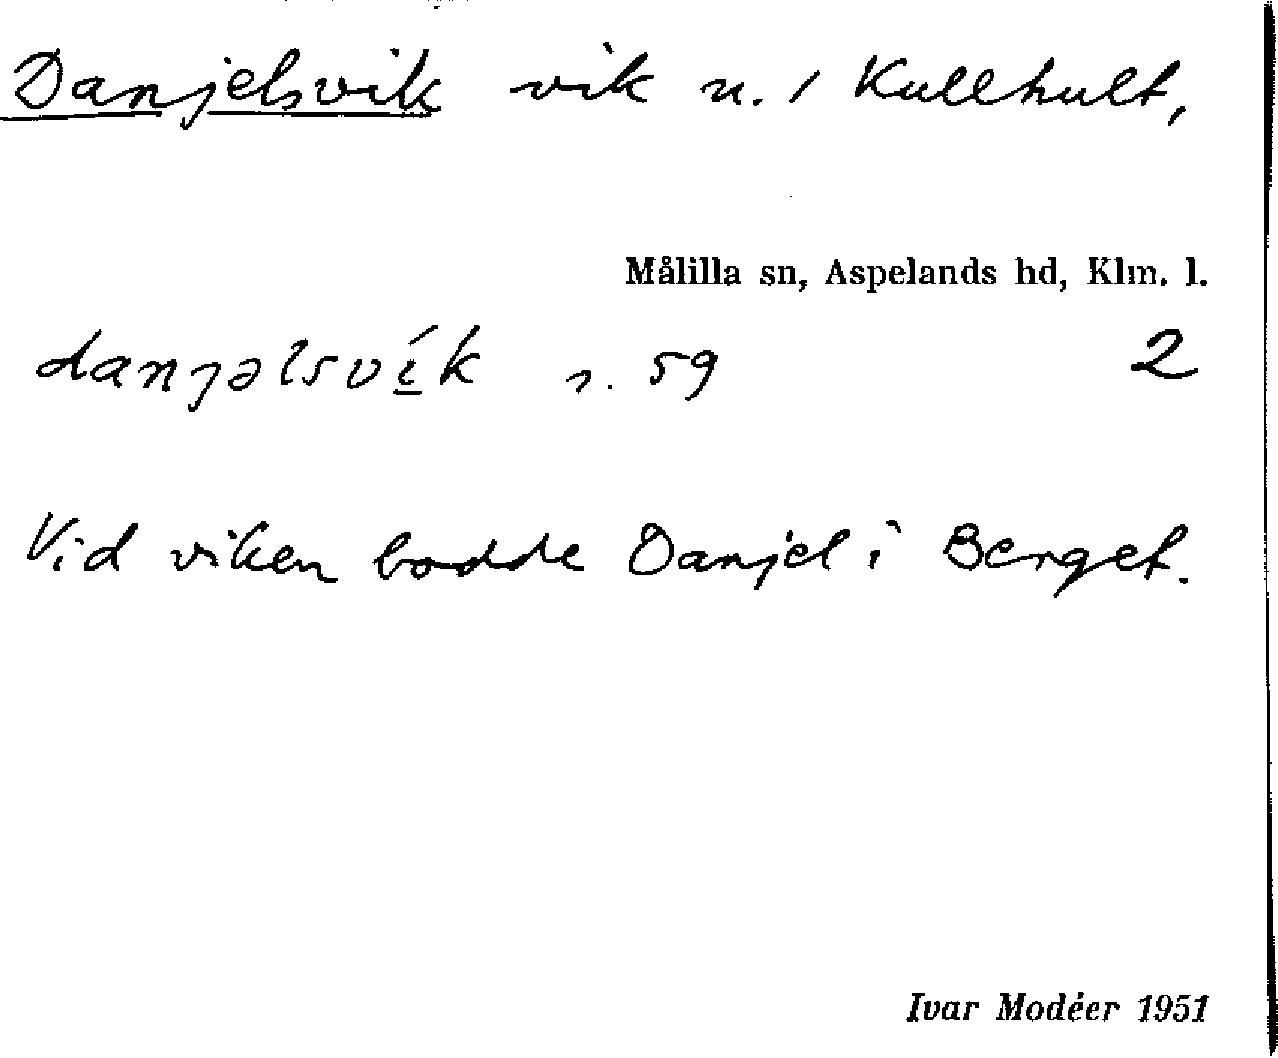 Danjelsvik vik n. / Kullhult,
Målilla sn, Aspelands hd, Klm. l.
danjəlsvı̲́k s. 59 2
Vid viken bodde Danjel i Berget.
Ivar Modéer 1951